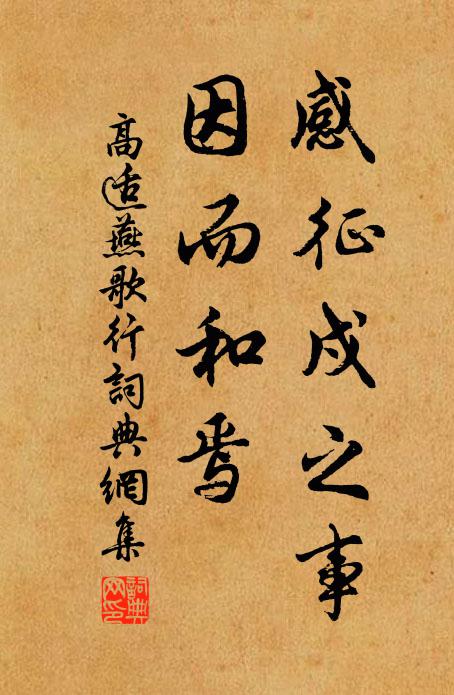 感征戍之事
因而和焉
高适燕歌行詞典網集
詞典网印